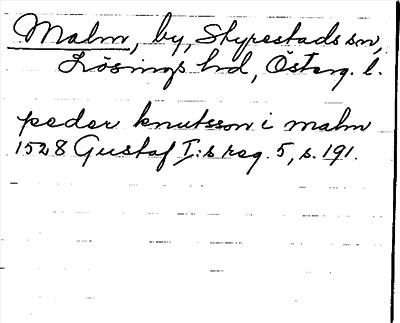 Malm, by, Styrestads sn,
Lösings hd, Österg. l.
peder knutsson i malm
1528 Gustaf I:s reg. 5, s. 191.